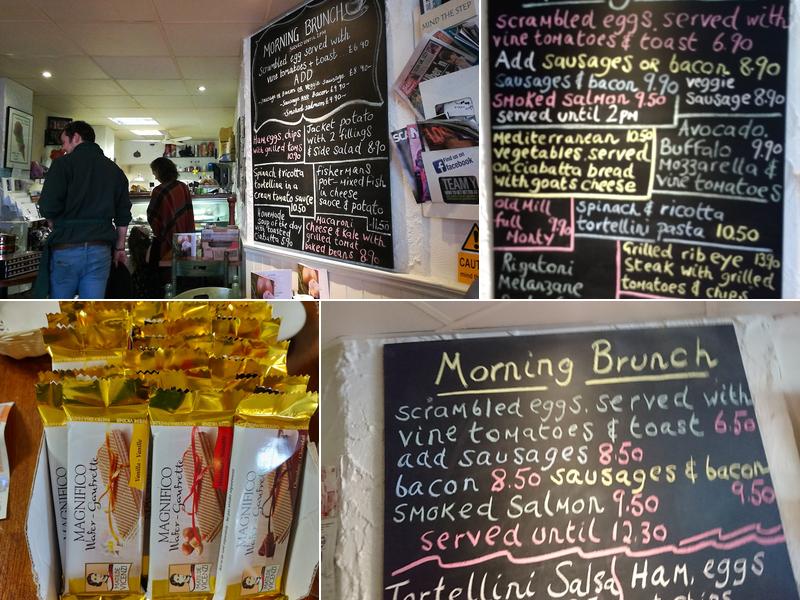 MORNING BRUNCH
SERVED UNTIL 2PM
Scrambled egg served with
vine tomatoes + toast £6.90
ADD
Sausage and Bacon £9.90
Smoked Salmon £9.90
Ham, eggs, chips
with grilled toms
10.90
Jacket potato
with 2 fillings
& side salad 8.90
Spinach & ricotta
tortellini in a
cream tomato sauce
10.50
fishermans
pot- mixed fish
in cheese
sauce & potato
11.50
Homemade
soup of the day
with toasted
ciabatta 5.90
Macaroni
cheese & Kale with
grilled tomat
baked beans 8.90
MIND THE STEP
Find us on
facebook
TEAM
CAUT
mind
scrambled eggs. served with
vine tomatoes & toast 6.90
Add sausages or bacon 8.90
Sausages & bacon 9.90
veggie
sausage 8.90
Smoked salmon 9.50
served until 2PM
Mediterranean 10.50
vegetables. served
on Ciabatta bread
with goats cheese
Avocado
Buffalo 9.90
Mozzarella &
vine tomatoes
Old Mill
full 9.90
Monty
spinach & ricotta
tortellini pasta 10.50
Rigatoni
Melanzane
Grilled rib eye 13.90
Steak with grilled
tomatoes & chips
MAGNIFICO
Wafer - Gaufrette
Vanilla - Vanille
MATILDE
VICENZI
MAGNIFICO
Wafer - Gaufrette
MATILDE
VICENZI
MAGNIFICO
Wafer - Gaufrette
MATILDE
VICENZI
Morning Brunch
scrambled eggs. served with
vine tomatoes & toast 6.50
add sausages 8.50
bacon 8.50 sausages & bacon
9.50
smoked Salmon 9.50
served until 12.30
Tortellini Salsa
Ham, eggs